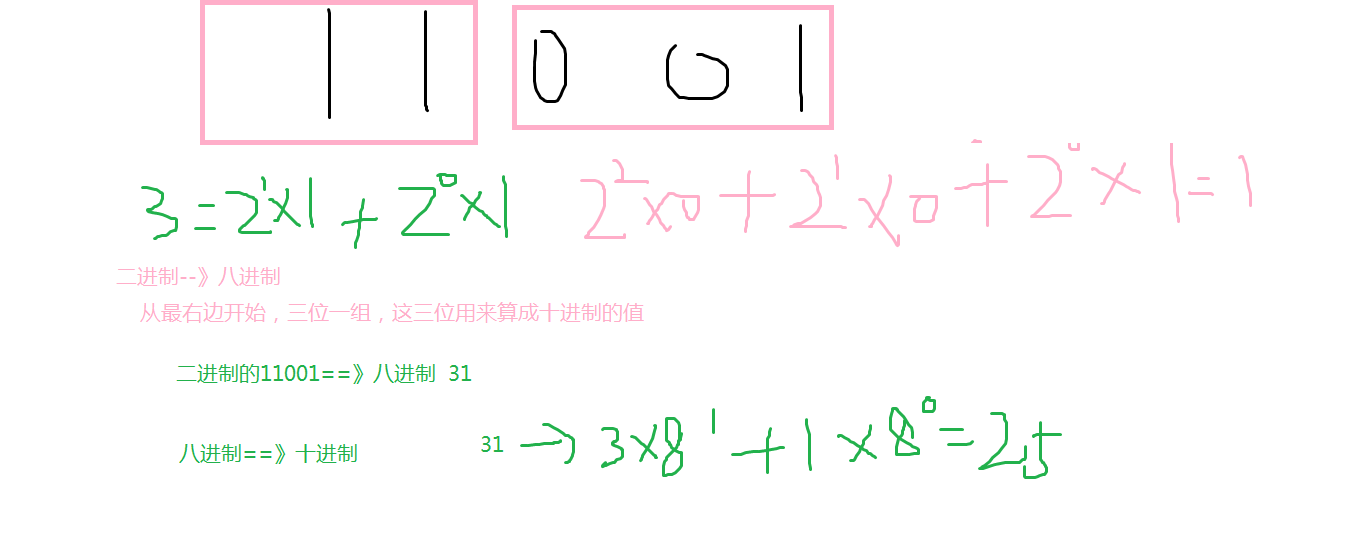 1 1 0 0 1
3=2¹×1+2⁰×1 2²×0+2¹×0+2⁰×1=1
二进制--》八进制
从最右边开始，三位一组，这三位用来算成十进制的值
二进制的11001==》八进制 31
八进制==》十进制 31→3×8¹+1×8⁰=25